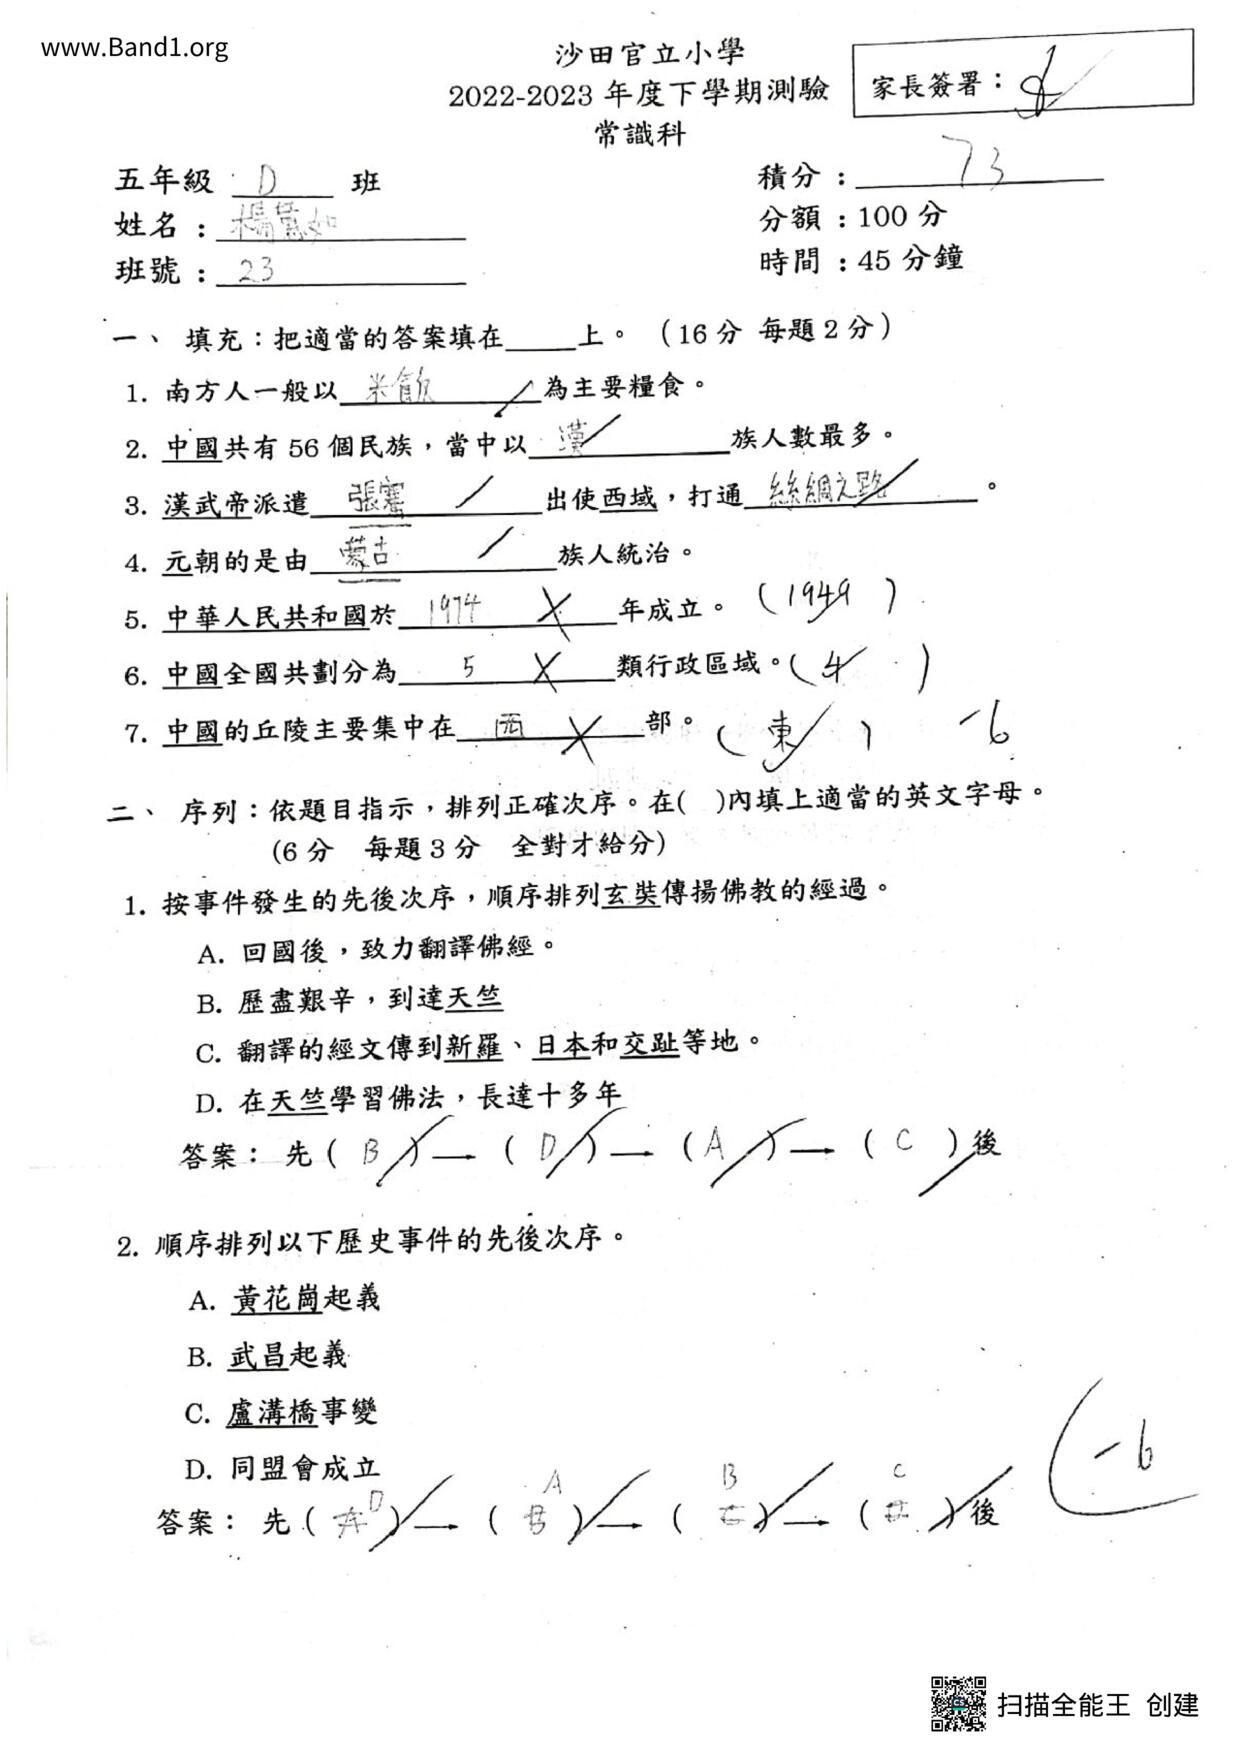 www.Band1.org
沙田官立小學
2022-2023 年度下學期測驗
常識科
家長簽署：
五年級 D 班
積分：73
姓名：楊慧如
分額：100 分
班號：23
時間：45 分鐘
一、 填充：把適當的答案填在____上。 （16 分 每題 2 分）
1. 南方人一般以 米飯 為主要糧食。
2. 中國共有 56 個民族，當中以 漢 族人數最多。
3. 漢武帝派遣 張騫 出使西域，打通 絲綢之路 。
4. 元朝的是由 蒙古 族人統治。
5. 中華人民共和國於 1974 年成立。 (1949)
6. 中國全國共劃分為 5 類行政區域。(4)
7. 中國的丘陵主要集中在 西 部。 (東) -6
二、 序列：依題目指示，排列正確次序。在( )內填上適當的英文字母。
(6 分 每題 3 分 全對才給分)
1. 按事件發生的先後次序，順序排列玄奘傳揚佛教的經過。
A. 回國後，致力翻譯佛經。
B. 歷盡艱辛，到達天竺
C. 翻譯的經文傳到新羅、日本和交趾等地。
D. 在天竺學習佛法，長達十多年
答案： 先 ( B ) → ( D ) → ( A ) → ( C ) 後
2. 順序排列以下歷史事件的先後次序。
A. 黃花崗起義
B. 武昌起義
C. 盧溝橋事變
D. 同盟會成立
-6
答案： 先 ( D ) → ( A ) → ( B ) → ( C ) 後
扫描全能王 创建